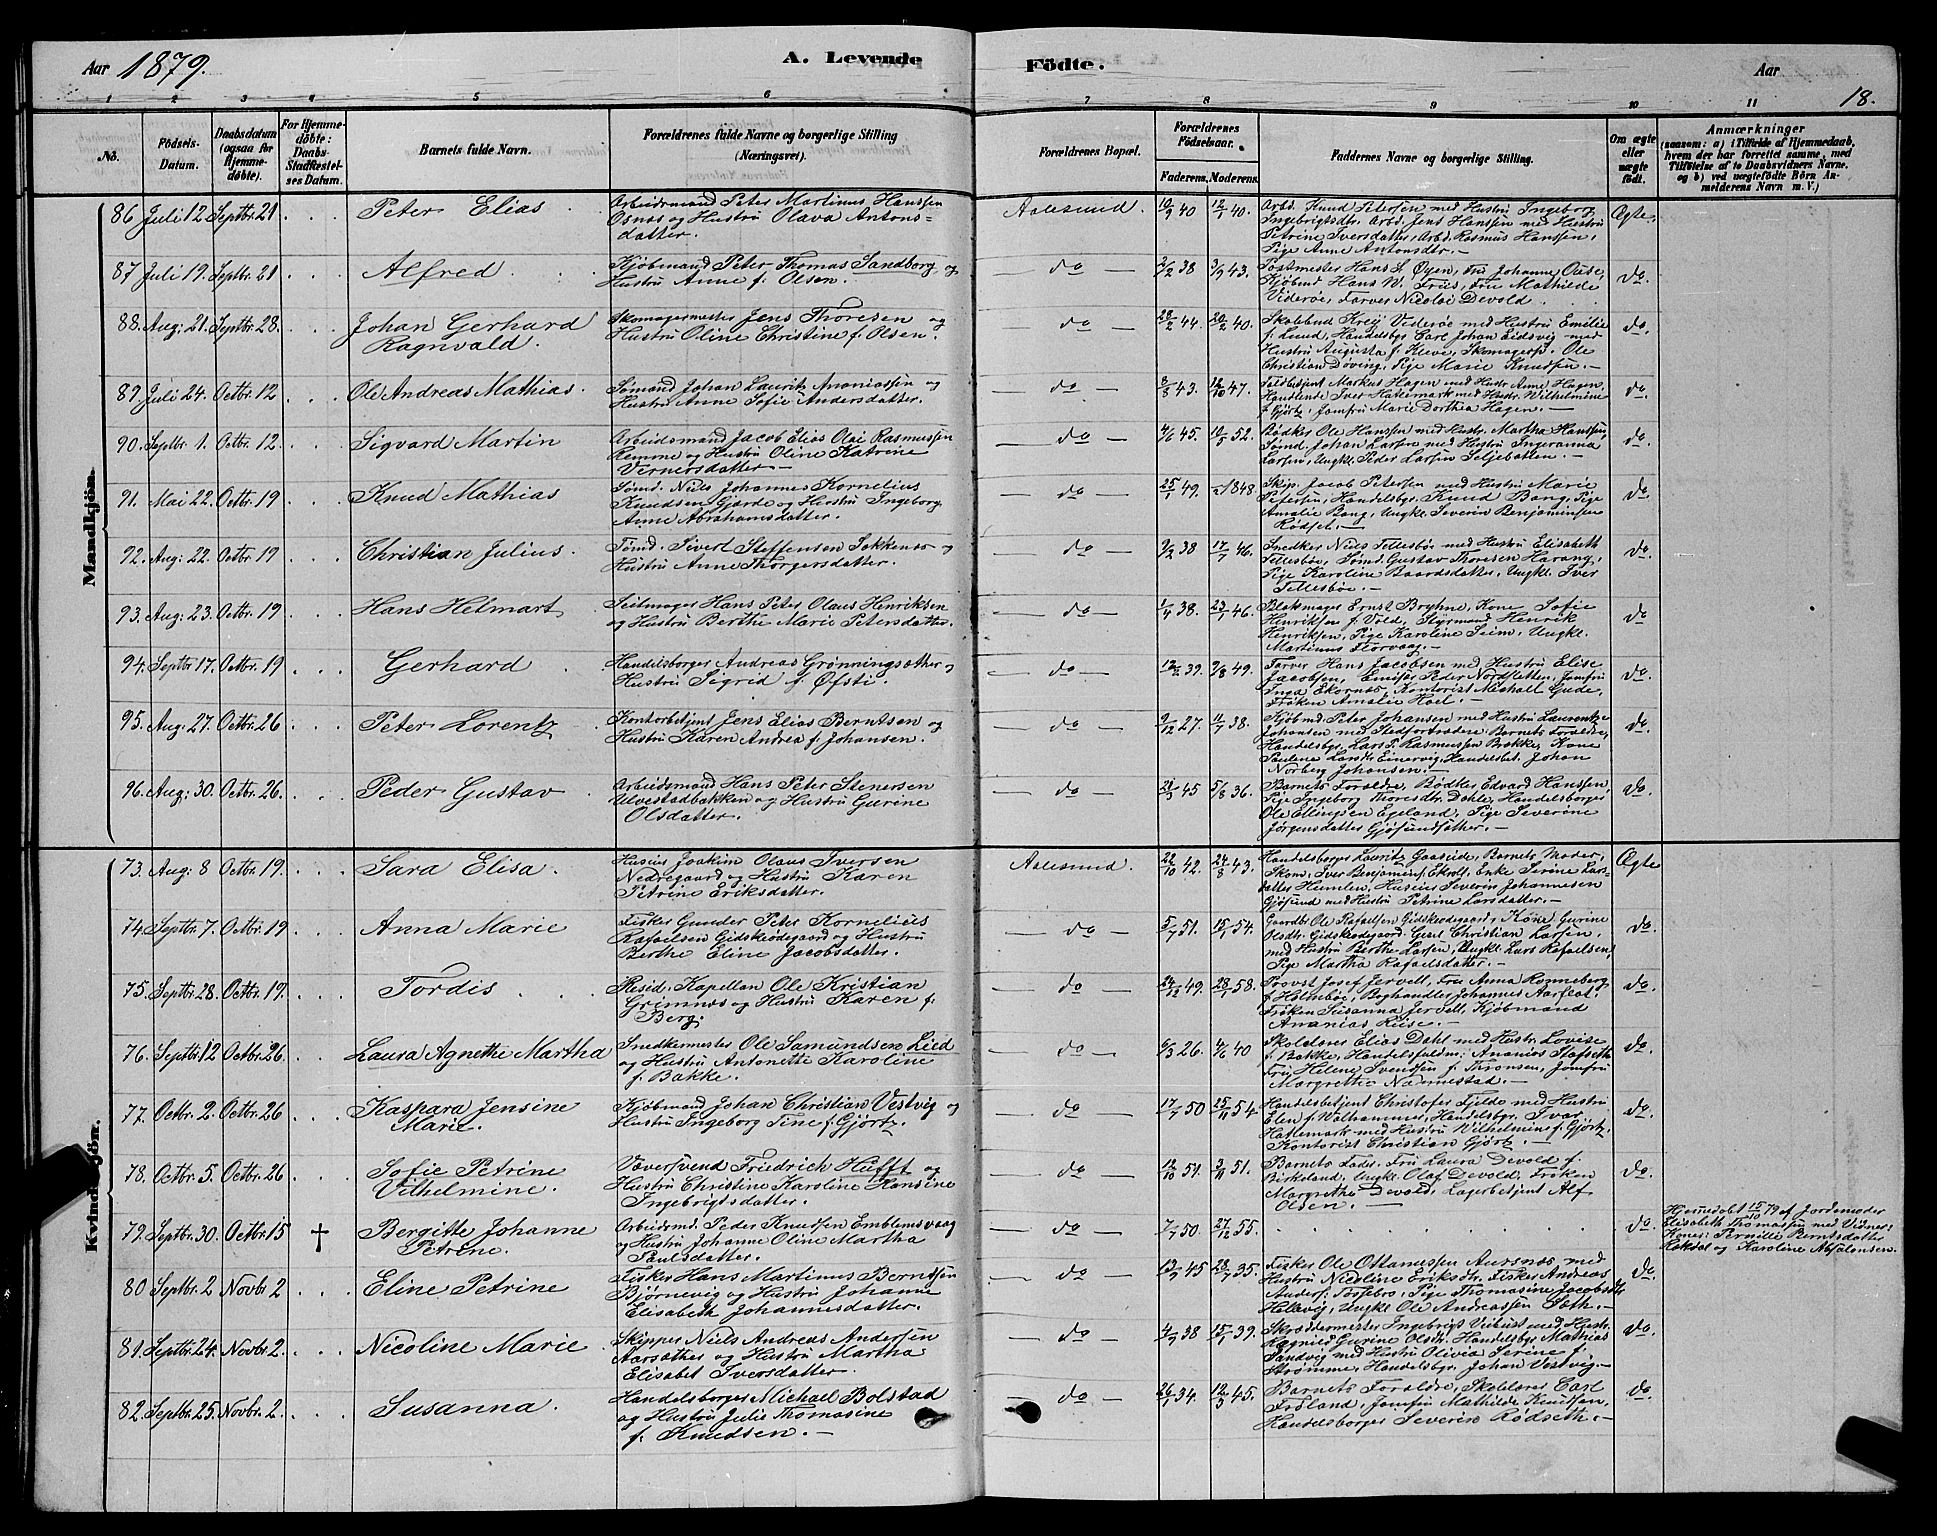 Aar 1879.
A. Levende Födte.
Aar
18.
1 2 3 4 5 6 7 8 9 10 11
No.
Födsels-Datum.
Daabsdatum (ogsaa for Hjemmedöbte).
For Hjemmedöbte: Daabs-Stadfæstelses Datum.
Barnets fulde Navn.
Forældrenes fulde Navne og borgerlige Stilling (Næringsvei).
Forældrenes Bopæl.
Forældrenes Födselsaar.
Faderens. Moderens.
Faddernes Navne og borgerlige Stilling.
Om ægte eller uægte födt.
Anmærkninger (saasom: a) i Tilfælde af Hjemmedaab, hvem der har forrettet samme, med Tilföielse af to Daabsvidners Navne, og b) ved uægtefödte Börn Anmelderens Navn m. V.)
Mandkjön.
86 Juli 12 Septbr. 21 Peter Elias Arbeidsmand Peter Martinus Hanssen Osnæs og Hustru Olava Antonsdatter. Aalesund. 10/9 40 12/1 40. Arbd. Knud Petersen med Hustru Ingeborg Ingebrigtsdtr. Arbd. Jens Hanssen med Hustru Petrine Iversdatter, Arbd. Rasmus Hanssen, Pige Anne Antonsdtr. Ægte.
87 Juli 19. Septbr. 21 Alfred Kjöbmand Peter Thomas Sandborg og Hustru Anne f. Olsen. do 2/2 38 3/9 43. Postmester Hans S. Øyen, Fru Johanne Aase, Kjöbmd Hans W. Friis, Fru Mathilde Videröe, Farver Nicolai Devold. do.
88. Aug: 21. Septbr. 28. Johan Gerhard Ragnvald. Skomagermester Jens Thoresen og Hustru Oline Christine f. Olsen. do 28/2 44. 20/2 40. Skolebud Kreij Videröe med Hustru Emilie f. Lund, Handelsbgr. Carl Johan Eidsvig med Hustru Augusta f. Kleve, Skomagersv. Ole Christian Döving, Pige Marie Knudsen. do
89. Juli 24. Octbr. 12 Ole Andreas Mathias. Sömand Johan Laurits Ananiassen og Hustru Anne Sofie Andersdatter. do 8/8 43. 12/10 47. Toldbetjent Markus Hagen med Hustr. Anne Hagen, Handlende Iver Hattemark med Hustr. Wilhelmine f. Gjörtz, Jomfru Marie Dorthea Hagen. do.
90. Septbr. 1. Octbr. 12. Sigvard Martin Arbeidsmand Jacob Elias Olai Rasmussen Remme og Hustru Oline Katrine Vernersdatter. do 4/6 45. 10/5 52. Bödker Ole Hanssen med Hustr. Martha Hanssen, Sömd. Johan Larsen med Hustru Ingeranna Larsen, Ungkl. Peder Larsen Seljebotten. do.
91. Mai 22. Octbr. 19 Knud Mathias Sömd. Niels Johannes Kornelius Knudsen Gjerde og Hustru Ingeborg Anne Abrahamsdatter. do 25/1 49. 1848. Skip. Jacob Petersen med Hustru Marie Petersen, Handelsbgr. Knud Bang, Pige Amalie Bang, Ungkl. Severin Benjaminsen Rödset. do.
92. Aug: 22. Octbr. 19 Christian Julius. Tömd. Sivert Steffensen Sokkenes og Hustru Anne Thorgersdatter. do 9/2 38 17/7 46. Snedker Niels Tellesböe med Hustru Elisabeth Tellesböe, Sömd. Gustav Thoresen Harang, Pige Karoline Baardsdatter, Ungkl. Iver Tellesböe. do.
93. Aug: 23. Octbr. 19 Hans Helmart Seilmager Hans Peter Olaus Henriksen og Hustru Berthe Marie Petersdatter. do 1/4 38. 23/1 46. Blokmager Ernst Bryhne, Kone Sofie Henriksen f. Vold, Styrmand Henrik Henriksen, Pige Karoline Seim, Ungkl. Martinus Torvaag. do
94. Septbr 17. Octbr. 19 Gerhard Handelsborger Andreas Grönningsæther og Hustru Sigrid f. Øfsti. do 12/2 39. 9/8 49. Farver Hans Jacobsen med Hustru Elise Jacobsen, Emissær Peder Nordsletten, Jomfru Inga Ekornæs, Kontorist Michall Gude, Fröken Amalie Hoel. do.
95. Aug: 27. Octbr. 26 Peter Lorentz Kontorbetjent Jens Elias Berntsen og Hustru Karen Andrea f. Johansen. do 9/12 27. 11/7 38. Kjöbmd. Peter Johansen med Hustru Laurentze Johansen med Stedfortrædere Barnets Forældre, Handelsbgr. Lars P. Rasmussen Bakke, Kone Pauline Larsdtr. Einervig, Handelsbet. Johan Norberg Johansen. do
96. Aug: 30. Octbr. 26. Peder Gustav Arbeidsmand Hans Peter Stenersen Ulvestadbakken og Hustru Gurine Olsdatter. do 21/3 45 5/8 36. Barnets Forældre, Bödker Edvard Hanssen, Pige Ingeborg Thoresdtr. Dahle, Handelsborger Ole Ellingsen Egeland, Pige Severine Jörgensdatter Gjösundsæther. do
Kvindekjön.
73. Aug: 8 Octbr. 19. Sara Elisa. Huseier Joakim Olaus Iversen Nedregaard og Hustru Karen Petrine Eriksdatter. Aalesund. 22/10 42. 24/8 43. Handelsborger Lauritz Gaaseide, Barnets Moder, Skom. Iver Benjaminsen Ekroll, Enke Serine Larsdatter Humlen, Huseier Severin Johannesen Gjösund med Hustru Petrine Larsdatter. Ægte
74. Septbr. 7. Octbr. 19 Anna Marie Fisker Gunder Peter Kornelius Rafaelsen Gidskeödegaard og Hustru Berthe Eline Jacobsdatter. do 5/7 51. 15/1 54. Gaardbr. Ole Rafaelsen Gidskeödegaard, Kone Gurine Olsdtr. Gidskeödegaard, Gesel Christian Larsen, med Hustru Berthe Larsen, Ungkl. Lars Rafaelsen, Pige Martha Rafaelsdatter. do.
75. Septbr. 28. Octbr. 19. Tordis Resid. Kapellan Ole Kristian Grimnes og Hustru Karen f. Berg. do 24/12 49. 28/1 58. Provst Josef Jervell, Fru Anna Ronneberg, f. Holmböe, Boghandler Johannes Aarflot, Fröken Susanna Jervell, Kjöbmand Ananias Reise. do.
76. Septbr. 12 Octbr. 26. Laura Agnethe Martha Snedkermester Ole Samundsen Lied og Hustru Antonette Karoline f. Bakke. do 6/3 26. 4/6 40 Skolelærer Elias Dahl med Hustr. Lovise f. Bakke, Handelsfuldm: Ananias Stafseth, Fru Helene Svendsen f. Thronsen, Jomfru Margrethe Nammestad. do.
77. Octbr. 2. Octbr. 26 Kaspara Jensine Marie. Kjöbmand Johan Christian Vestvig og Hustru Ingeborg Tine f. Gjörtz. do 17/7 50 25/11 54. Handelsbetjent Christofer Fjelde med Hustru Elen f. Walhammer, Handelsbgr. Ivar Hattemark med Hustru Wilhelmine f. Gjörtz, Kontorist Christian Gjörtz. do
78. Octbr. 5. Octbr. 26 Sofie Petrine Vilhelmine. Væversvend Friedrich Hufft og Hustru Christine Karoline Hansine Ingebrigtsdatter. do 12/10 51. 3/11 51. Barnets Fader, Fru Laura Devold f. Birkeland, Ungkl. Olaf Devold, Fröken Margrethe Devold, Lagerbetjent Alf Olsen. do
79. Septbr. 30. Octbr. 15 † Bergitte Johanne Petrine. Arbeidsmd. Peder Knudsen Emblemsvaag og Hustru Johanne Oline Martha Paulsdatter. do 7/7 50. 27/12 55. do Hjemmedöbt 15/10 79 af Jordemoder Elisabeth Thomassen med Vidner, Koner: Pernille Berntsdatter Rokdal og Karoline Absalonsen.
80 Septbr. 2 Novbr. 2 Eline Petrine Fisker Hans Martinus Berntsen Björnevig og Hustru Johanne Elisabeth Johannesdatter. do 13/9 45 28/7 35. Fisker Ole Ottomessen Aursnæs med Hustru Nicoline Eriksdtr. Fisker Andreas Anders: Tossebro, Pige Thomasine Jacobsdtr. Hellevig, Ungkl. Ole Andreassen Soth. do
81. Septbr. 24. Novbr. 2. Nicoline Marie Skipper Niels Andreas Andersen Aarsæther og Hustru Martha Elisabet Iversdatter. do 4/7 38 15/1 39. Skræddermester Ingebrigt Vibust med Hustr. Ragnied Gurine Olsdtr. Handelsbgr. Mathias Sandvig med Hustru Olivia Serine f. Strömme, Handelsbgr. Johan Vestvig. do.
82. Septbr. 25. Novbr. 2. Susanna. Handelsborger Michael Bolstad og Hustru Julie Thomasine f. Knudsen. do 26/1 34. 12/3 45. Barnets Forældre, Skolelærer Carl Fröland, Jomfru Mathilde Knudsen, Handelsborger Severin Rödseth. do